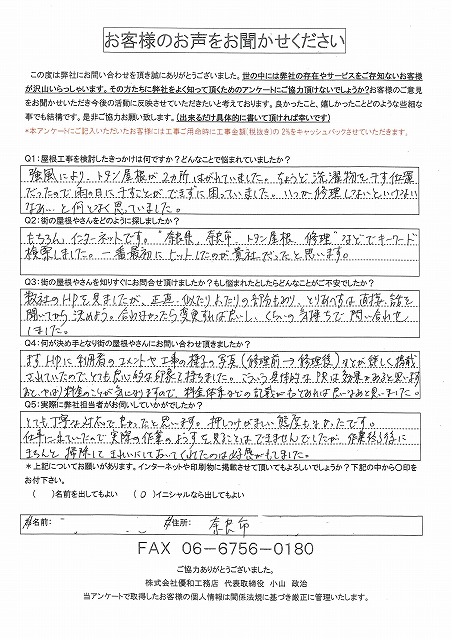 お客様のお声をお聞かせください
この度は弊社にお問い合わせを頂き誠にありがとうございました。世の中には弊社の存在やサービスをご存知ないお客様
が沢山いらっしゃいます。その方たちに弊社をよく知って頂くためのアンケートにご協力頂けないでしょうか？お客様のご意見
をお聞かせいただき今後の活動に反映させていただきたいと考えております。良かったこと、嬉しかったことどのような些細な
事でも結構です。是非ご協力お願い致します。(出来るだけ具体的に書いて頂ければ幸いです)
*本アンケートにご記入いただいたお客様には工事ご用命時に工事金額(税抜き)の 2%をキャッシュバックさせていただきます。
Q1：屋根工事を検討したきっかけは何ですか？どんなことで悩まれていましたか？
強風により、トタン屋根が2ヵ所はがれていました。ちょうど洗濯物を干す位置
だったので雨の日に干すことができずに困っていました。いつか修理しないといけない
なぁ…と何となく思っていました。
Q2：街の屋根やさんをどのように探しましたか？
もちろん、インターネットです。"奈良県、奈良市、トタン屋根、修理"などでキーワード
検索しました。一番最初にヒットしたのが貴社だったと思います。
Q3：街の屋根やさんを知りすぐにお問合せ頂けましたか？もし悩まれたとしたらどんなことがご不安でしたか？
数社のHPを見ましたが、正直、似たりよったりの部分もあり、とりあえずは直接、話を
聞いてから決めよう。合わなかったら変更すれば良いし、くらいの気持ちで問い合わせ
しました。
Q4：何が決め手となり街の屋根やさんにお問い合わせ頂きましたか？
まずHPに利用者のコメントや工事の様子の写真(修理前→修理後)などが詳しく掲載
されていたのでとても良い印象を持ちました。こういう具体的なPRは効果があると思います。
あと、やはり料金のことが気になりますので、料金体系などの記載がもっとあれば良いなあと思いました。
Q5：実際に弊社担当者がお伺いしていかがでしたか？
とても丁寧な対応で良かったと思います。押しつけがましい態度もなかったです。
仕事に出ていたので実際の作業のようすを見ることはできませんでしたが、作業終了後に
きちんと掃除してきれいにしておいてくれたのは好感がもてました。
*上記についてお願いがあります。インターネットや印刷物に掲載させて頂いてもよろしいでしょうか？下記の中から〇印を
お付下さい。
( )名前を出してもよい ( O )イニシャルなら出してもよい
#名前： #住所： 奈良市
FAX 06－6756－0180
ご協力ありがとうございました。
株式会社優和工務店 代表取締役 小山 政治
当アンケートで取得したお客様の個人情報は関係法規に基づき厳正に管理いたします。